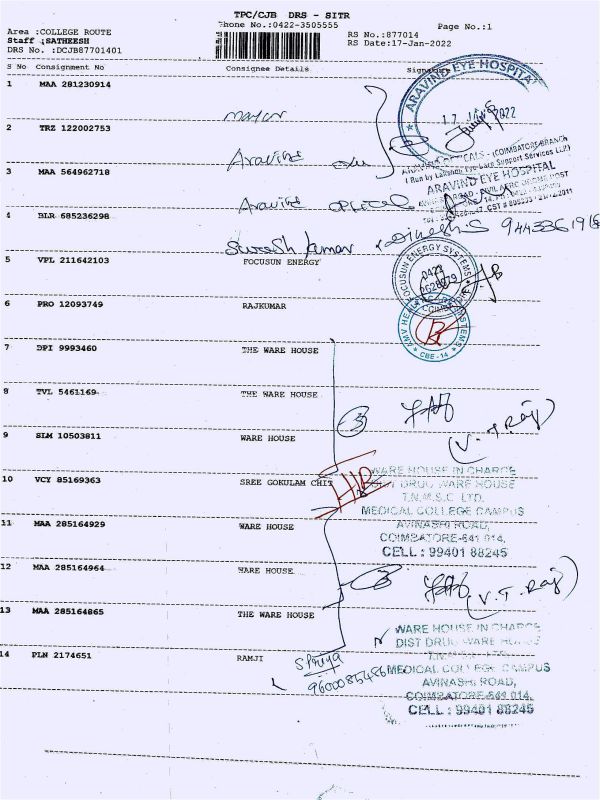 TPC/CJB DRS - SITR
Phone No.:0422-3505555
Page No.:1
Area :COLLEGE ROUTE
RS No.:877014
Staff :SATHEESH
RS Date:17-Jan-2022
DRS No. :DCJB87701401
S No Consignment No Consignee Details Signature
1 MAA 281230914
ARAVIND EYE HOSPITAL
17 JAN 2022
2 TRZ 122002753
Aravind
(Run by Lakshmi Eye Care Support Services LLP)
3 MAA 564962718
ARAVIND EYE HOSPITAL
Aravind optical
4 BLR 685236298
Suresh kumar
Dinesh.S
5 VPL 211642103 FOCUSUN ENERGY
FOCUSUN ENERGY SYSTEMS
0422
6 PRO 12093749 RAJKUMAR
CBE-14
7 DPI 9993460 THE WARE HOUSE
8 TVL 5461169 THE WARE HOUSE
(V.T.Raj)
9 SLM 10503811 WARE HOUSE
10 VCY 85169363 SREE GOKULAM CHIT
WARE HOUSE IN CHARGE
DIST DRUG WARE HOUSE
T.N.M.S.C LTD.
MEDICAL COLLEGE CAMPUS
11 MAA 285164929 WARE HOUSE
AVINASHI ROAD,
COIMBATORE-641 014.
CELL : 99401 88245
12 MAA 285164964 WARE HOUSE
(V.T.Raj)
13 MAA 285164865 THE WARE HOUSE
WARE HOUSE IN CHARGE
DIST DRUG WARE HOUSE
T.N.M.S.C LTD.
14 PLN 2174651 RAMJI
S Priya
9600085486
MEDICAL COLLEGE CAMPUS
AVINASHI ROAD,
COIMBATORE-641 014.
CELL : 99401 88245